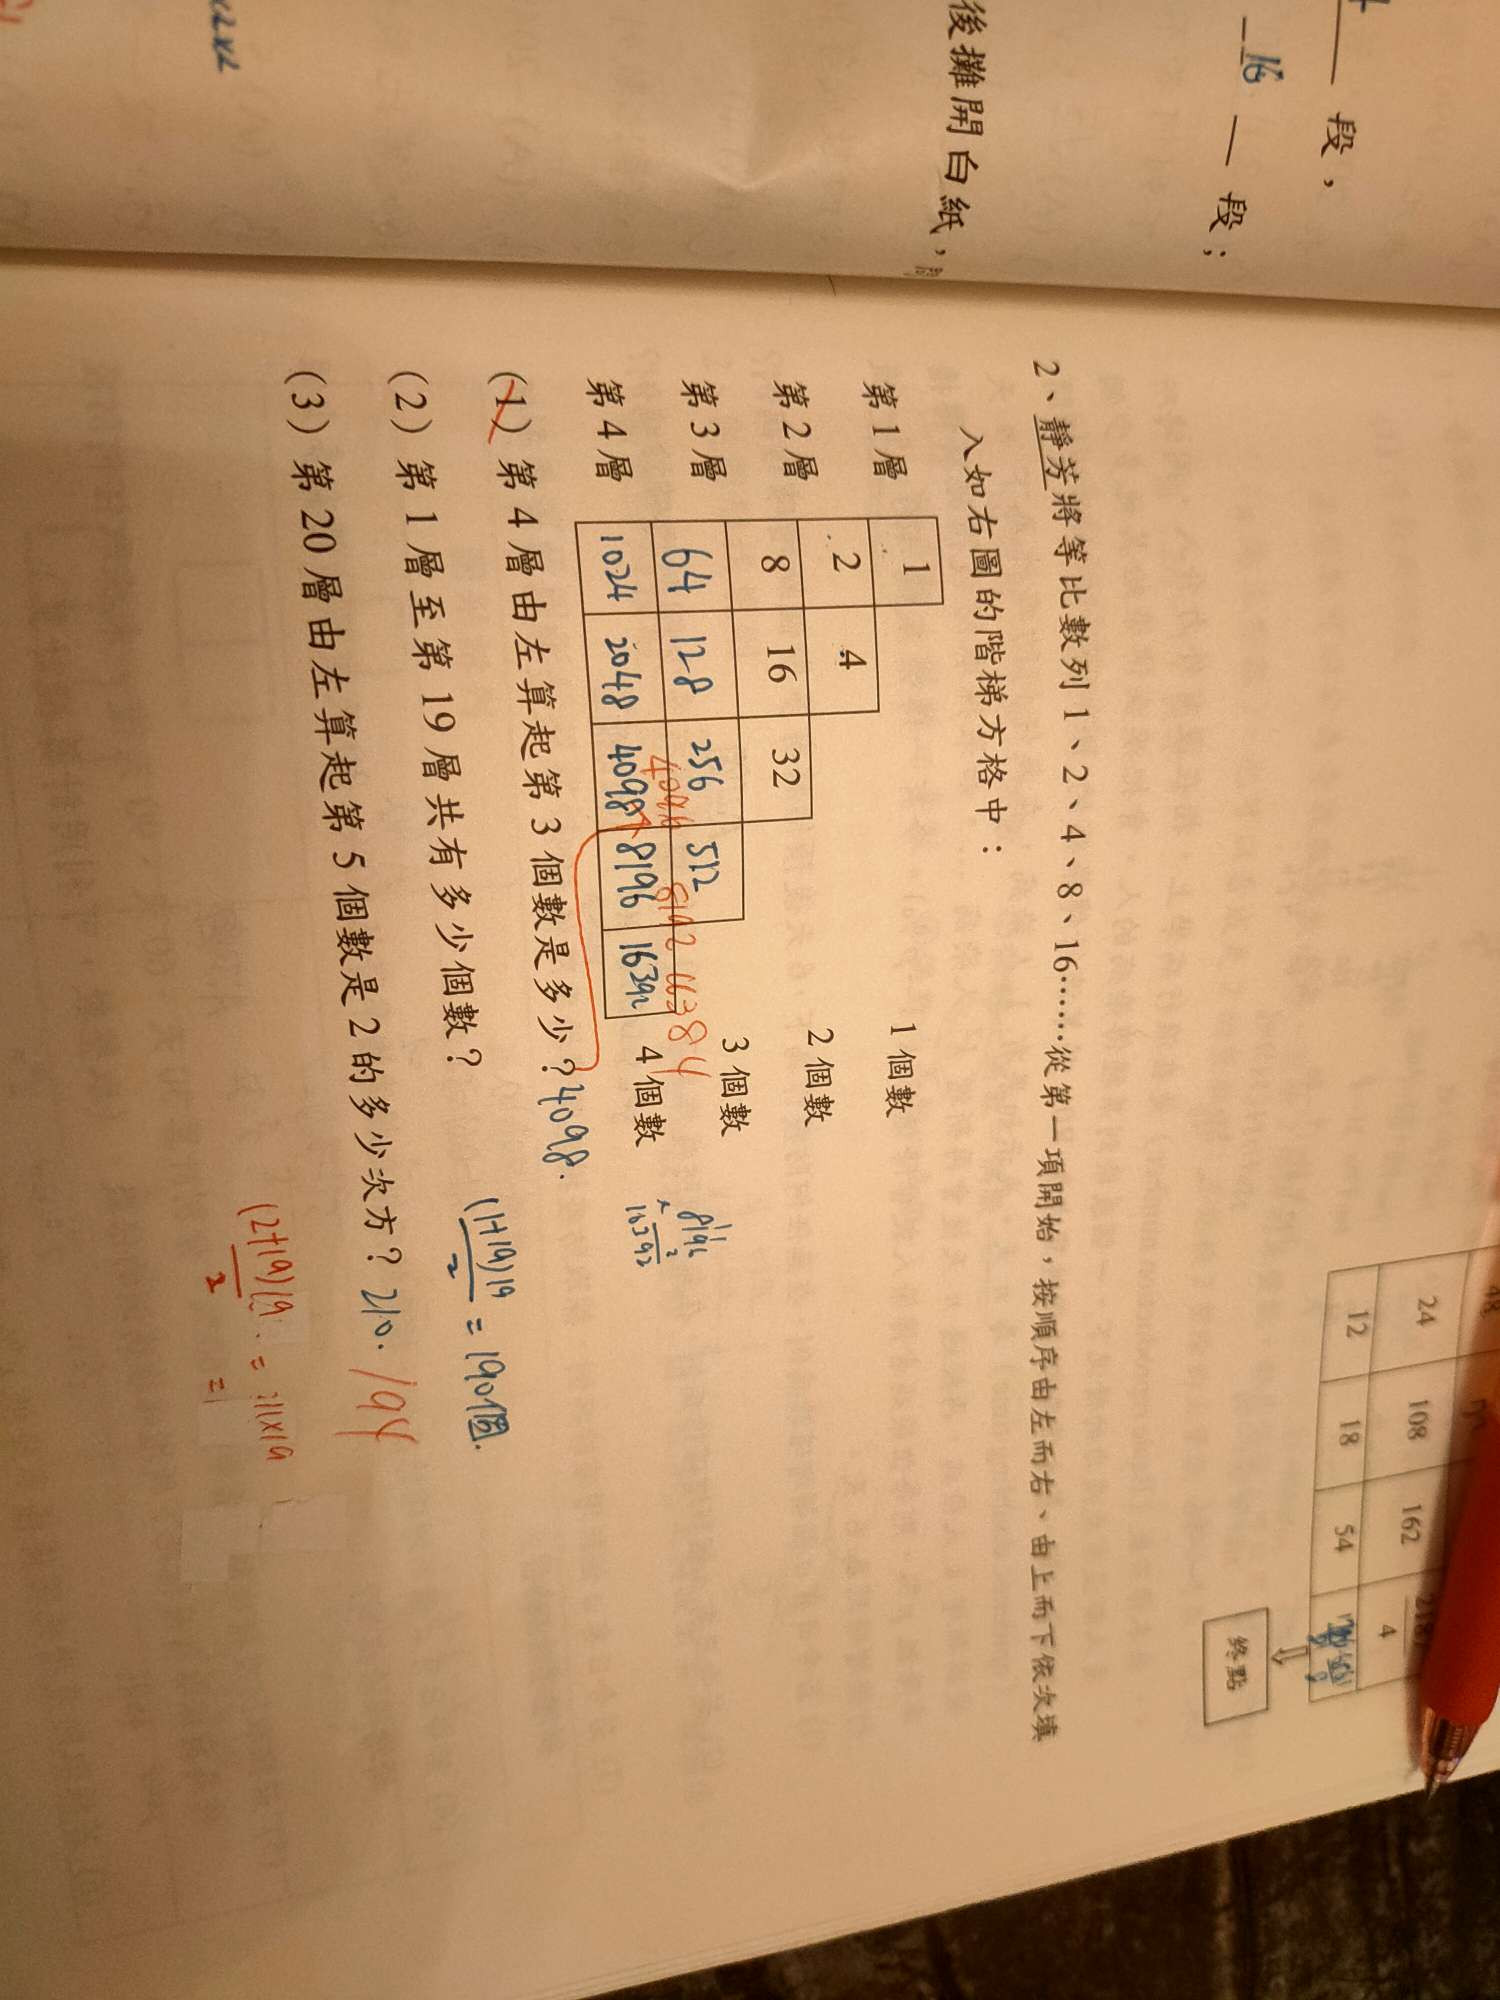 段，
16 段；
後攤開白紙，
24 108 162 4
12 18 54
終點
2、靜芳將等比數列1、2、4、8、16……從第一項開始，按順序由左而右、由上而下依次填
入如右圖的階梯方格中：
第1層 1 1個數
第2層 2 4 2個數
第3層 8 16 32 3個數
第4層 64 128 256 512 4個數
4096 8192 16384
1024 2048 4098 8196 16392
8196
× 2
16392
(1) 第4層由左算起第3個數是多少？4098.
(2) 第1層至第19層共有多少個數？ (1+19)19
2 = 190個.
(3) 第20層由左算起第5個數是2的多少次方？210. 194
(2+19)19
2